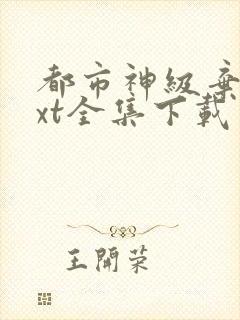 都市神级弃
xt全集下载
王開荣